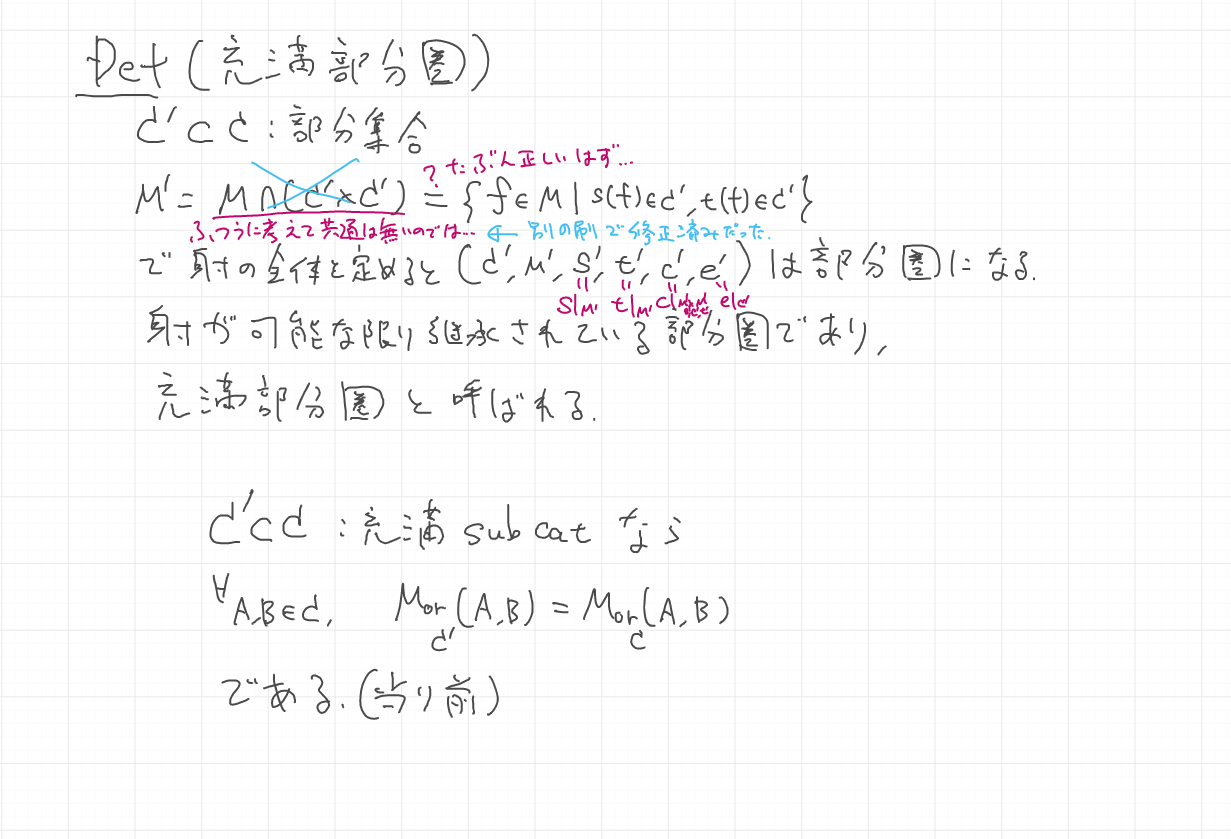 Def (充満部分圏)
C'⊂C : 部分集合
? たぶん正しいはず…
M' = M∩(C'×C') = {f∈M | s(f)∈C', t(f)∈C'}
ふつうに考えて共通は無いのでは… ← 別の刷で修正済みだった.
で射の全体を定めると (C', M', s', t', c', e') は部分圏になる.
s|M' t|M' e|C'
射が可能な限り継承されている部分圏であり,
充満部分圏と呼ばれる.
C'⊂C : 充満 sub cat なら
∀A,B∈C, Mor(A,B) = Mor(A,B)
C' C
である. (当り前)